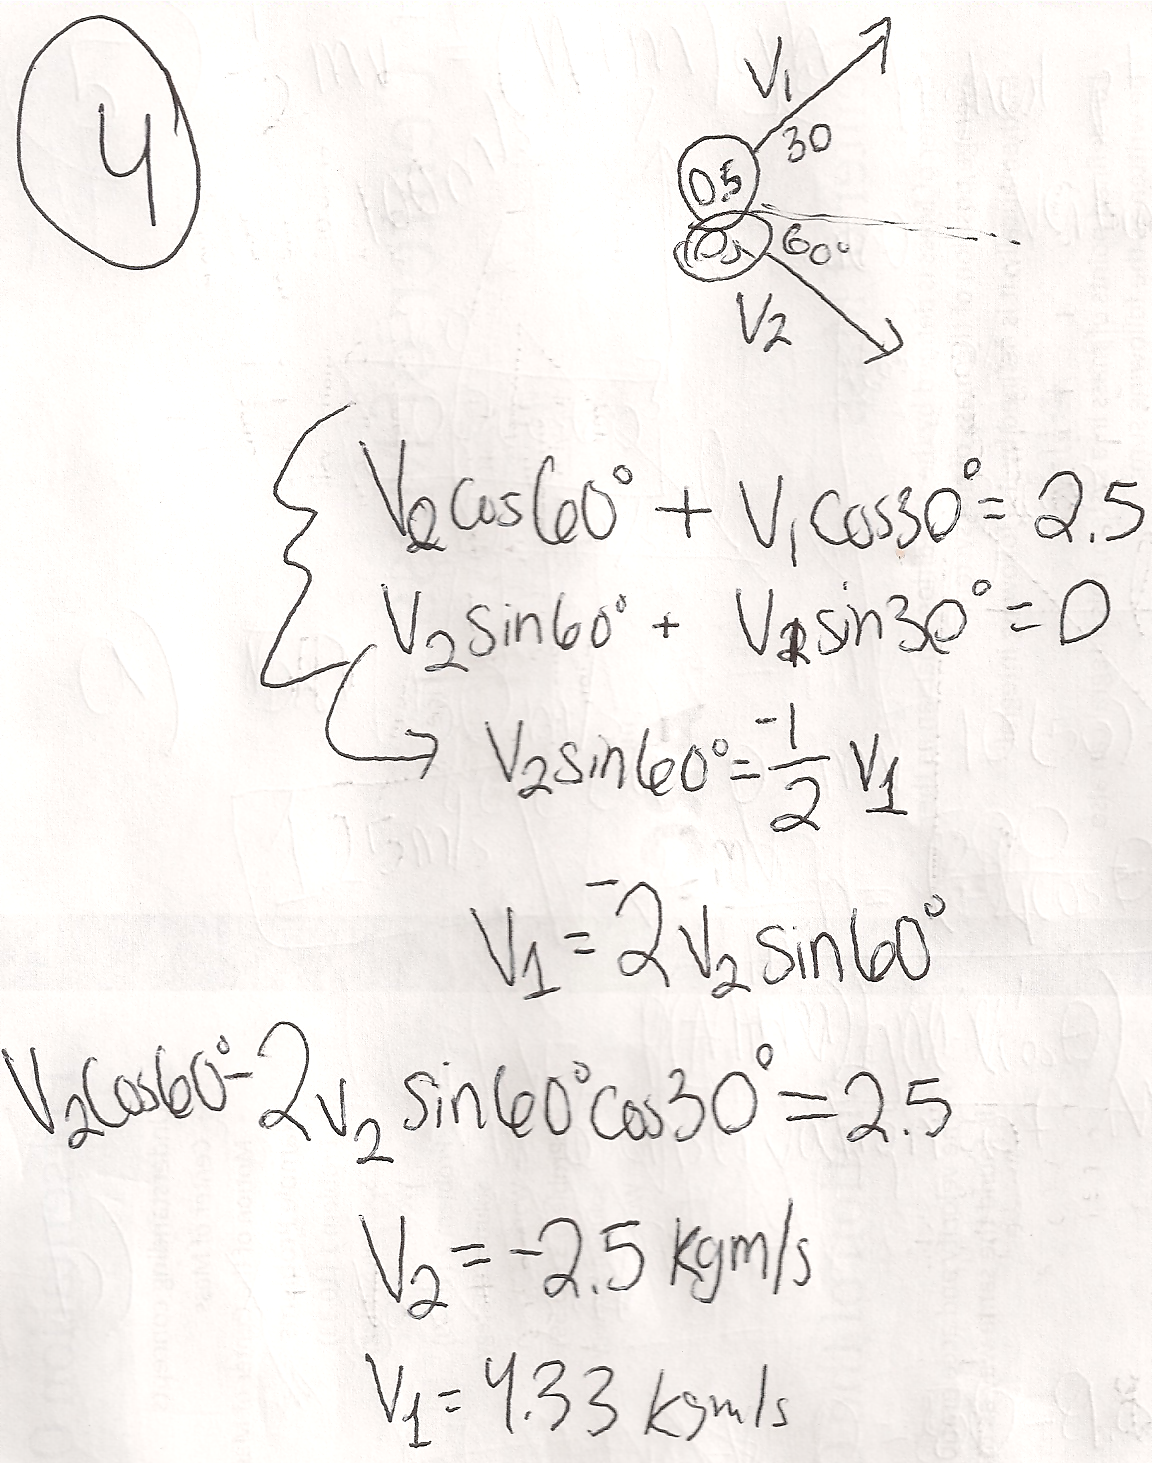 4
V1
30
0.5
60°
V2
V2 cos60° + V1 cos30° = 2.5
V2 sin60° + V1 sin30° = 0
V2 sin60° = -1/2 V1
V1 = -2 V2 sin60°
V2 cos60° - 2 V2 sin60° cos30° = 2.5
V2 = -2.5 kgm/s
V1 = 4.33 kgm/s